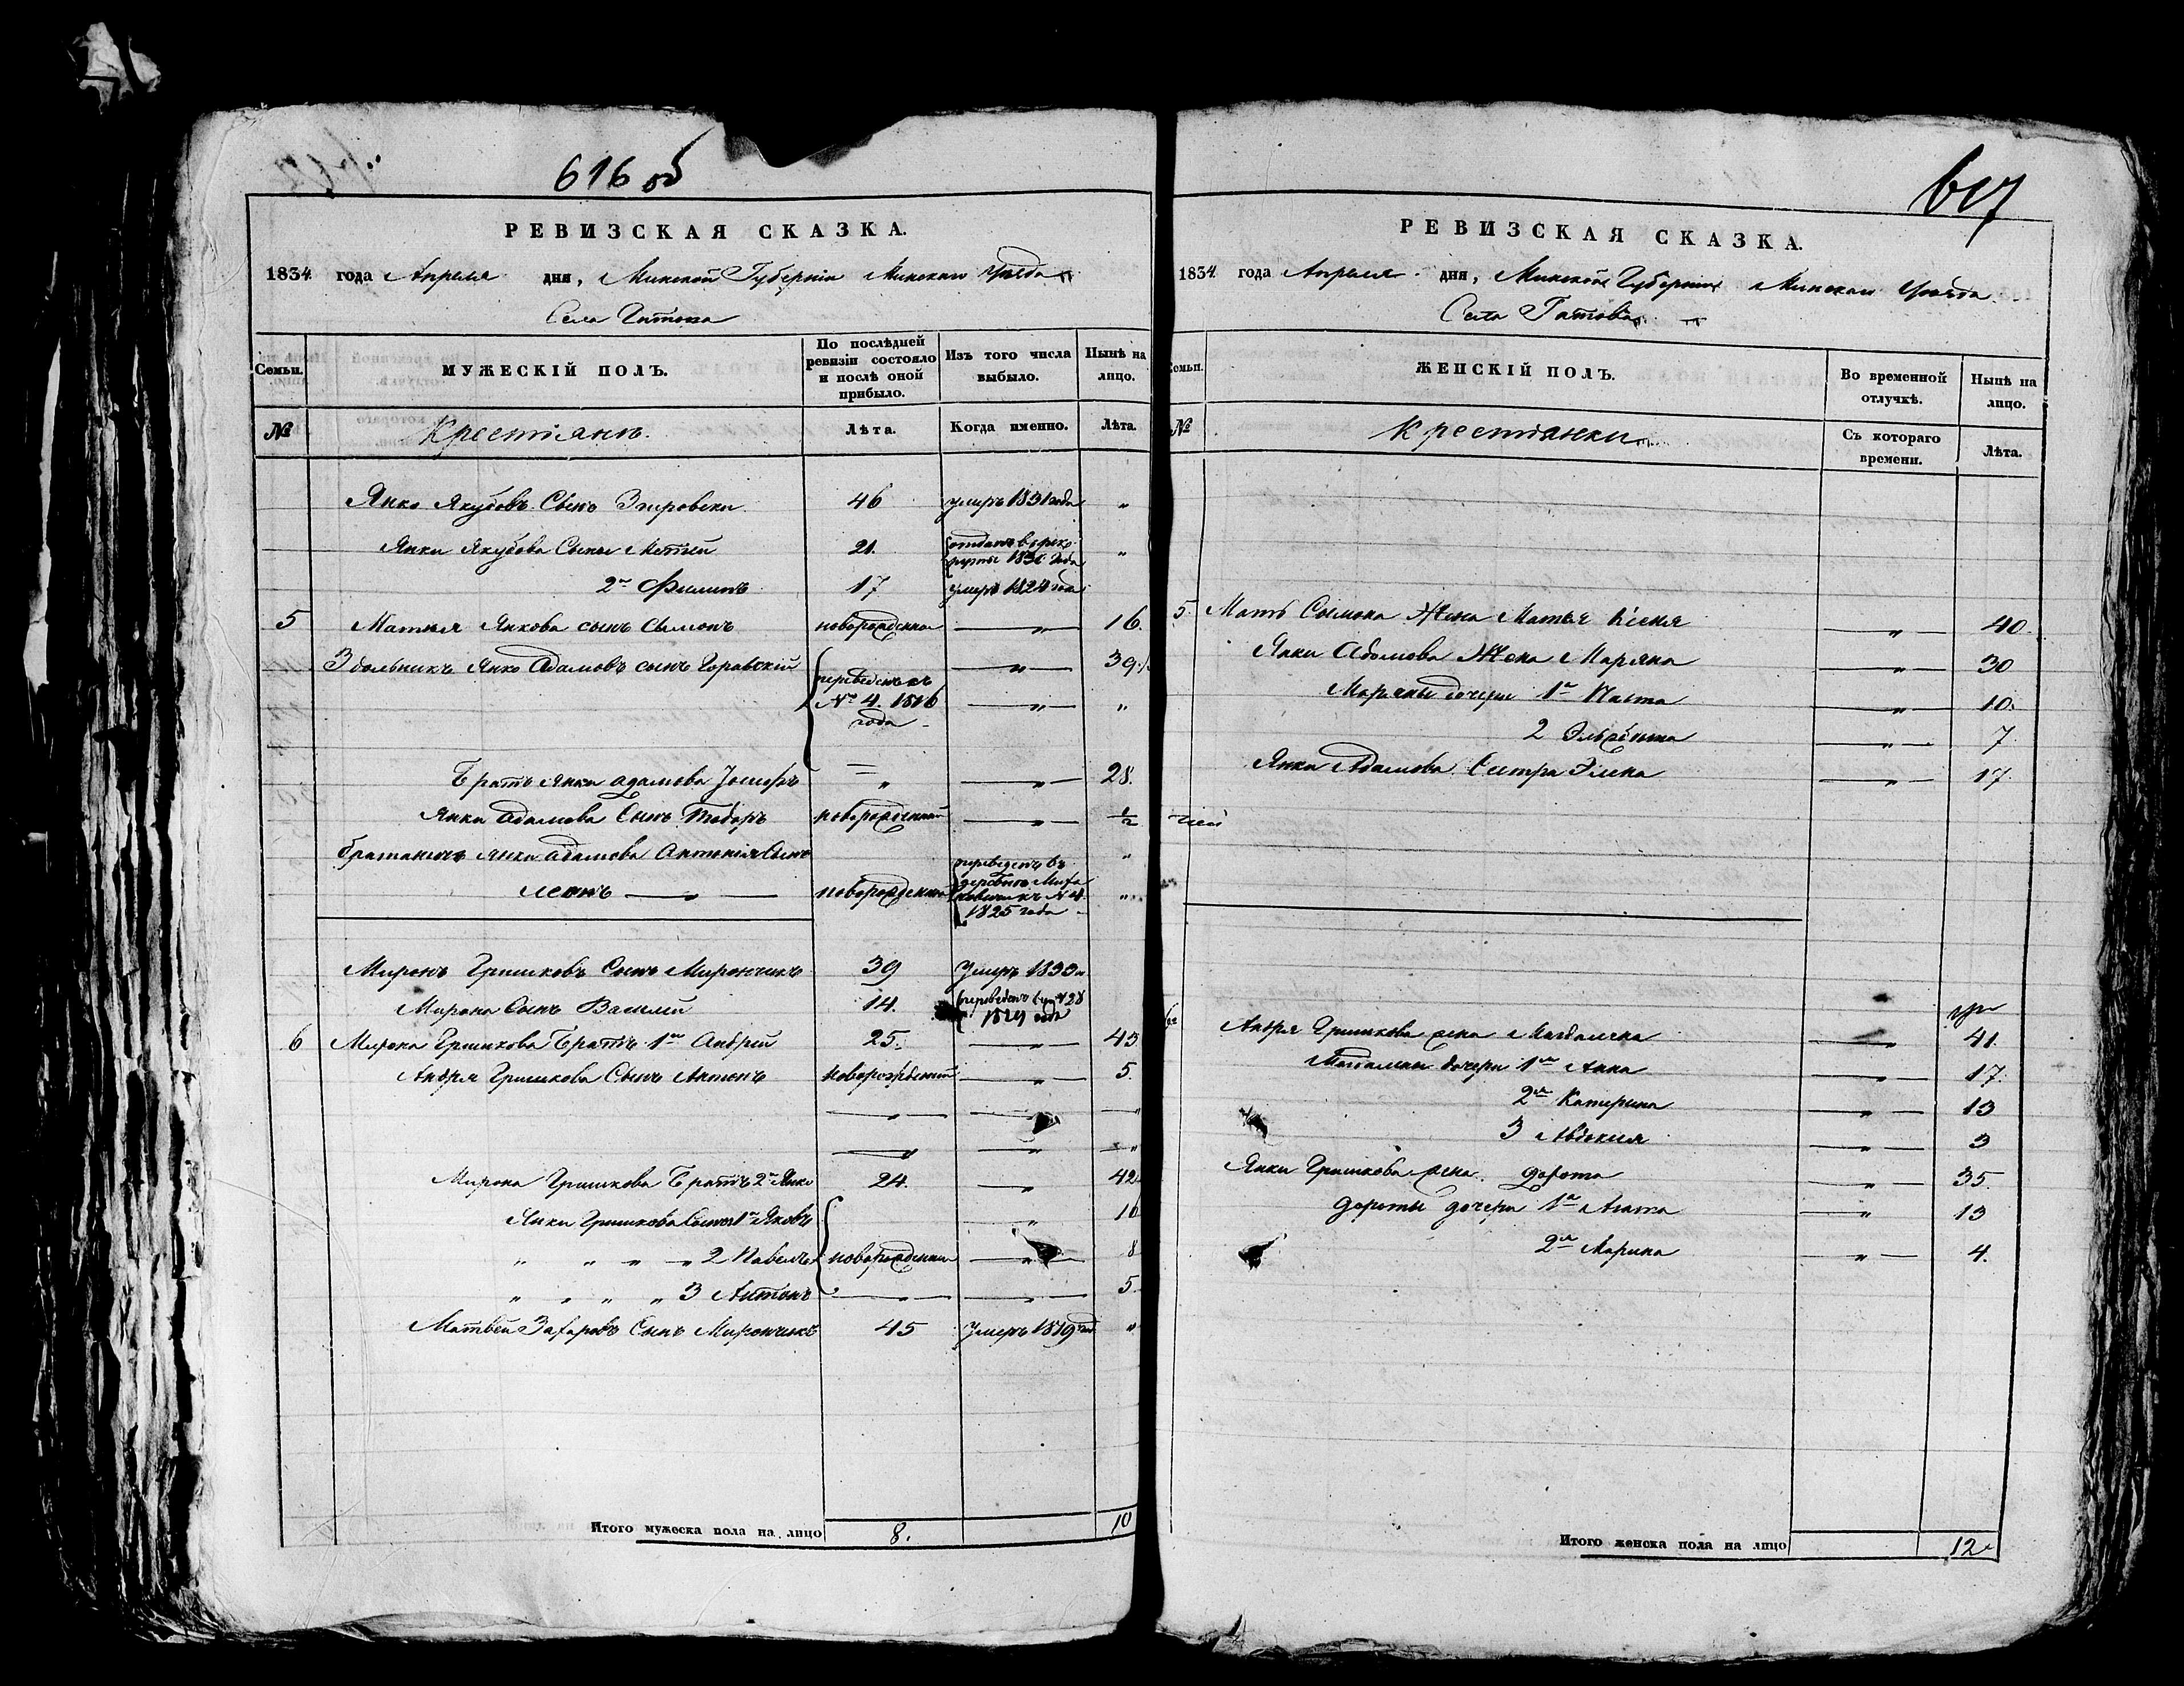 616 об
РЕВИЗСКАЯ СКАЗКА.
1834 года Апреля дня, Минской Губернiи Минскаго Уѣзда
Села Гатова
Семьи. МУЖЕСКIЙ ПОЛЪ. По послѣдней ревизiи состояло и послѣ оной прибыло. Изъ того числа выбыло. Нынѣ на лицо.
№ Крестiянъ. Лѣта. Когда именно. Лѣта.
Янко Якубовъ Сынъ 46 умеръ 1831 года "
Янки Якубова Сыны 21. отданъ в рекруты года "
2й Филипъ 17 умеръ года
5 Матѣя Янкова сынъ Сымонъ новорожденной — " — 16.
Здольникъ Янко Адамовъ сынъ Горавскiй переведенъ съ № 4. 1816 года — " — 39.
— " — "
Братъ Янки Адамова Iосифъ " — " — 28.
Янки Адамова Сынъ Тодоръ новорожденный — " — ½
братаничъ Янки Адамова Антонiя Сынъ "
— " — новорожденный переведенъ въ деревню № 4. 1825 года "
Миронъ Гришковъ Сынъ Мирончикъ 39 Умеръ 1833
Мирона Сынъ Василiй 14. переведенъ года
6 Мирона Гришкова Братъ 1й Андрей 25. — " — 43
Андрея Гришкова Сынъ Антонъ Новорожденный — " — 5.
— " — — " — "
— " — — " — "
Мирона Гришкова Братъ 2й Янко 24. — " — 42
Янки Гришкова Сыновья 1й Яковъ " 16
" " " " 2 Павелъ новорожденныи — " — 8
" " " " 3 Антонъ — " — — " — 5.
Матвей Захаровъ Сынъ Мирончикъ 45 Умеръ 1819 года "
Итого мужеска пола на лицо 8. 10
617
РЕВИЗСКАЯ СКАЗКА.
1834 года Апреля дня, Минской Губернiи Минскаго Уѣзда
Села Гатова
Семьи. ЖЕНСКIЙ ПОЛЪ. Во временной отлучкѣ. Нынѣ на лицо.
№ Крестiянки Съ котораго времени. Лѣта.
5. Мать Сымона Жена Матѣя — " — 40.
Янки Адамова Жена Марьяна — " — 30
Марьяны дочери 1я — " — 10.
2 — " — 7
Янки Адамова Сестра Элена — " — 17.
6 Андрея Гришкова жена Магдалена — " — 41.
Магдалены дочери 1я Анна — " — 17.
2я Катерина — " — 13
3 Авдокия — " — 3
Янки Гришкова жена Дорота — " — 35.
Дороты дочери 1я Агата — " — 13
2я Марина — " — 4.
Итого женска пола на лицо 12